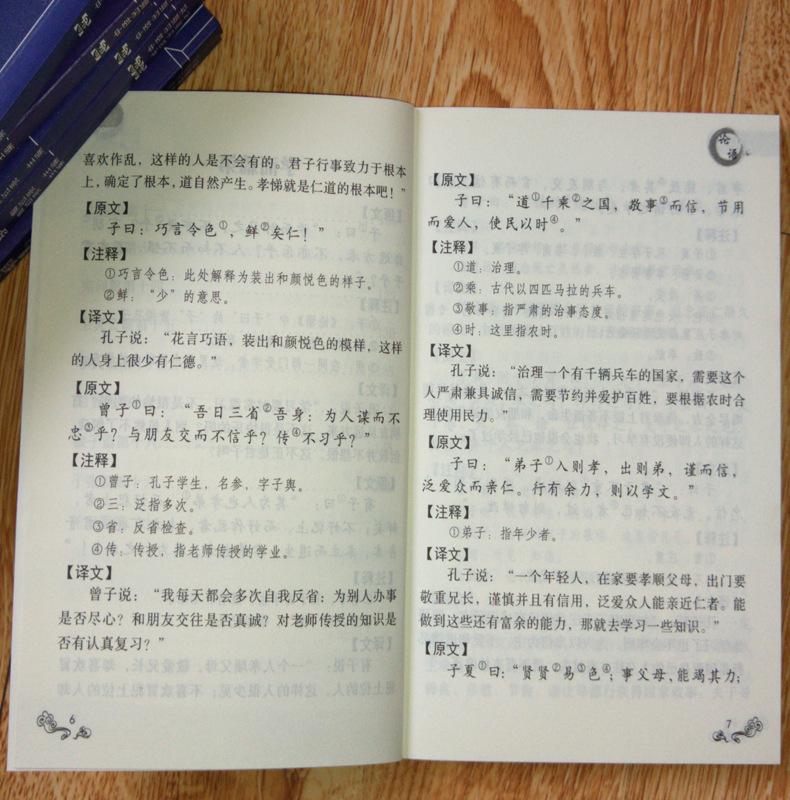 喜欢作乱，这样的人是不会有的。君子行事致力于根本
上，确定了根本，道自然产生。孝悌就是仁道的根本吧！”
【原文】
子曰：巧言令色①，鲜②矣仁！”
【注释】
①巧言令色：此处解释为装出和颜悦色的样子。
②鲜：“少”的意思。
【译文】
孔子说：“花言巧语，装出和颜悦色的模样，这样
的人身上很少有仁德。”
【原文】
曾子①曰：“吾日三省②吾身：为人谋而不
忠③乎？与朋友交而不信乎？传④不习乎？”
【注释】
①曾子：孔子学生，名参，字子舆。
②三：泛指多次。
③省：反省检查。
④传：传授，指老师传授的学业。
【译文】
曾子说：“我每天都会多次自我反省：为别人办事
是否尽心？和朋友交往是否真诚？对老师传授的知识是
否有认真复习？”
6
论语
【原文】
子曰：“道①千乘②之国，敬事③而信，节用
而爱人，使民以时④。”
【注释】
①道：治理。
②乘：古代以四匹马拉的兵车。
③敬事：指严肃的治事态度。
④时：这里指农时。
【译文】
孔子说：“治理一个有千辆兵车的国家，需要这个
人严肃兼具诚信，需要节约并爱护百姓，要根据农时合
理使用民力。”
【原文】
子曰：“弟子①入则孝，出则弟，谨而信，
泛爱众而亲仁。行有余力，则以学文。”
【注释】
①弟子：指年少者。
【译文】
孔子说：“一个年轻人，在家要孝顺父母，出门要
敬重兄长，谨慎并且有信用，泛爱众人能亲近仁者。能
做到这些还有富余的能力，那就去学习一些知识。”
【原文】
子夏①曰：“贤贤②易③色④；事父母，能竭其力；
7